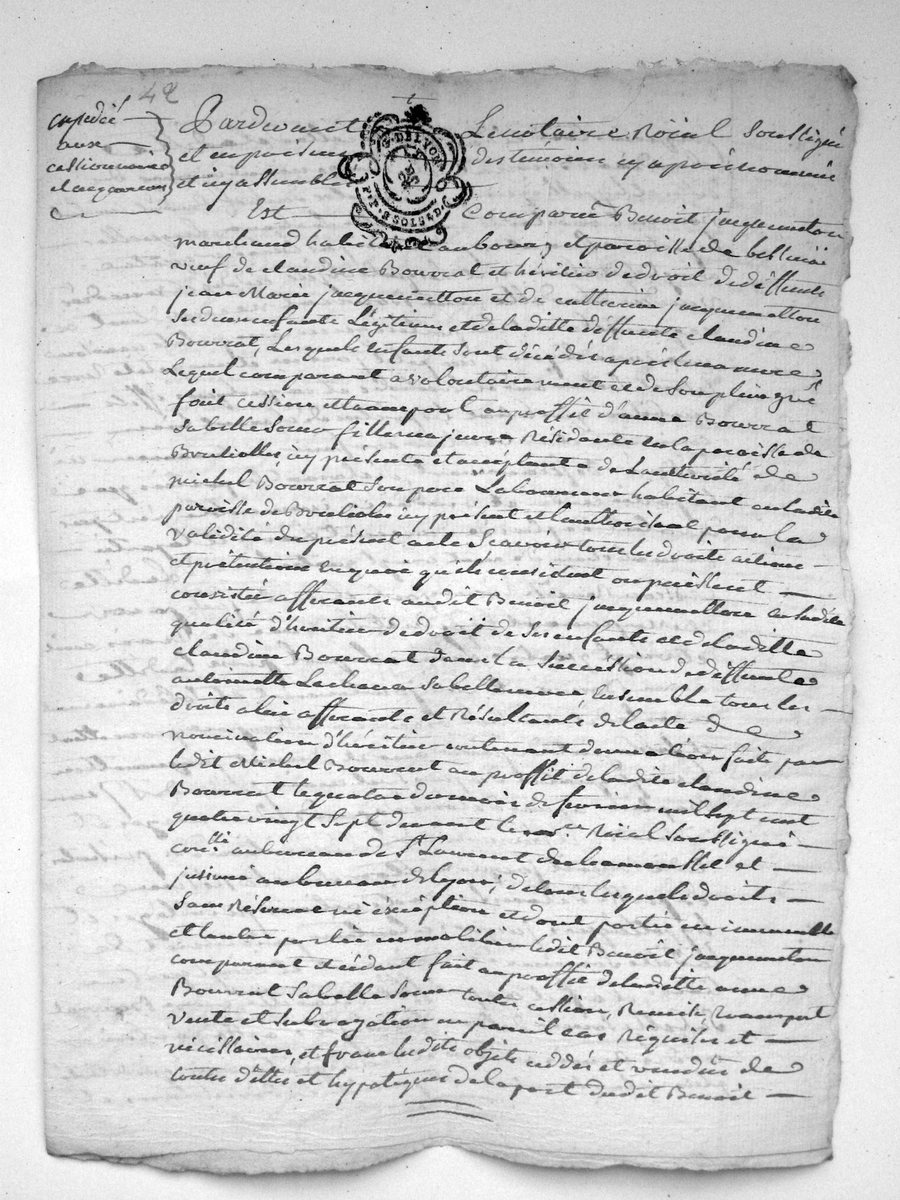 42
expedié
aux
cessionnaires
Pardevant Le notaire Roial soussigné
et en présence des témoins cy après nommés
et cy assemblés
G. DE LYON
PAP. 2 SOLS 4 D.
Est Comparu Benoit jacquemetton
marchand habitant au bourg et paroisse de bessenai
veuf de claudine Bourrat et héritier de droit de deffunts
jean Marie jacquemetton et de catherine jacquemetton
ses deux enfants Légitimes et de laditte deffunte claudine
Bourrat, Lesquels enfants sont décédés après leur mere
Lequel comparant a volontairement et de son plein gré
fait cession et transport au proffit d'anne Bourrat
sa belle soeur fille majeure Résidante en la paroisse de
Brulioles, icy présente et acceptante de L'authorité de
michel Bourrat son pere Laboureur habitant en ladite
paroisse de Brulioles icy présent et L'authorisant pour la
validité du présent acte Scavoir tous les droits actions
et prétentions en quoi qu'ils consistent ou puissent
consister afférants audit Benoit jacquemetton en sadite
qualité d'héritier de droit de ses enfants et de laditte
claudine Bourrat dans la succession de deffunte
antoinette Lachana sa belle mere Ensemble tous les
droits a lui afférants et Résultants de l'acte de
nomination d'héritier contenant donnation faite par
ledit Michel Bourrat au proffit de ladite claudine
Bourrat le quatre du mois de fevrier mil sept cent
quatre vingt sept devant le no.re Roial soussigné
con.llé au bureau de St Laurent de chamousset et
insinué au bureau de Lyon; de tous lesquels droits
sans Réserve ni exception et dont partie en immeuble
et l'autre partie en mobilier ledit Benoit jacquemetton
comparant et cédant fait au proffit de laditte anne
Bourrat sa belle soeur toutes cession, Remise, transport
vente et subrogation en pareil cas Requises et
nécéssaires, et francs lesdits objets cédés et vendus de
toutes dettes et hypoteques de la part dudit Benoit